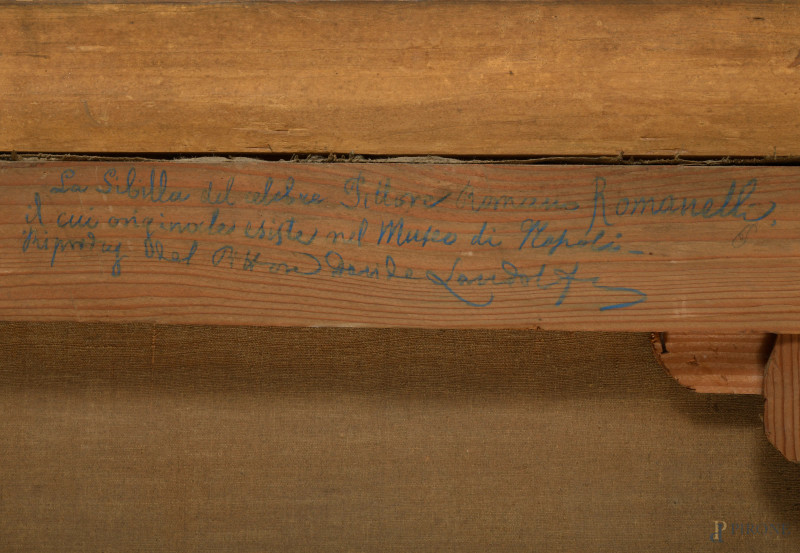 La Sibilla del celebre Pittore Romano Romanelli.
il cui originale esiste nel Museo di Napoli
Riproduz del Pittore Davide Landolfi